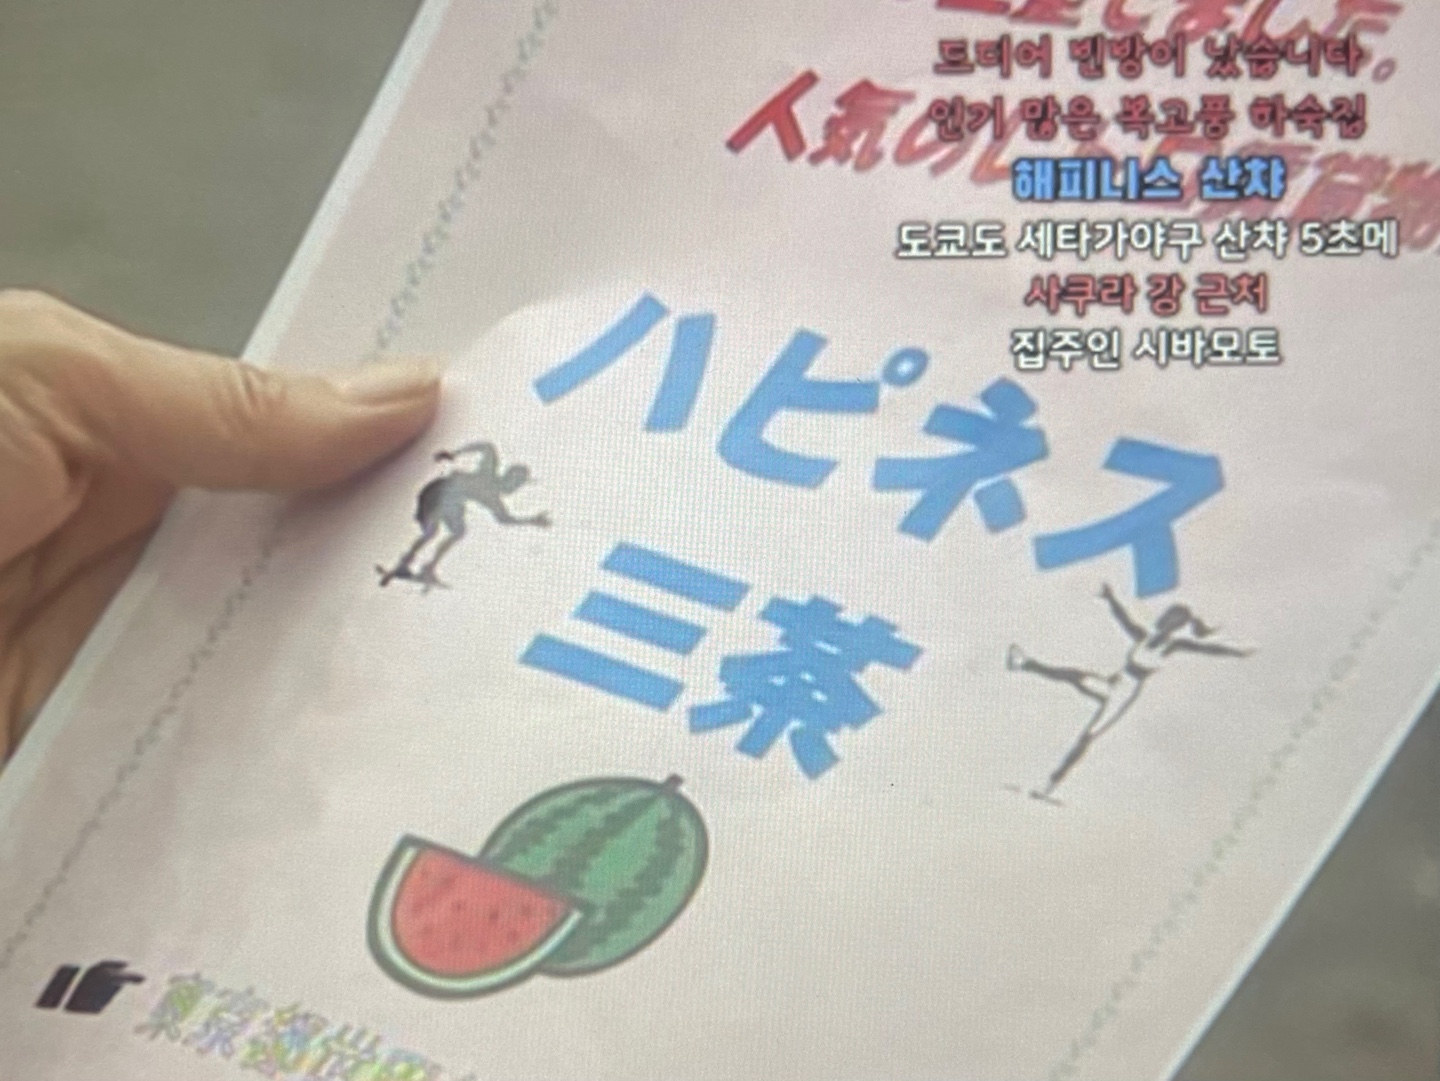 드디어 빈방이 났습니다
인기 많은 복고풍 하숙집
해피니스 산챠
도쿄도 세타가야구 산챠 5초메
사쿠라 강 근처
집주인 시바모토
しました。
人気の
ハピネス
三茶
東京都世田